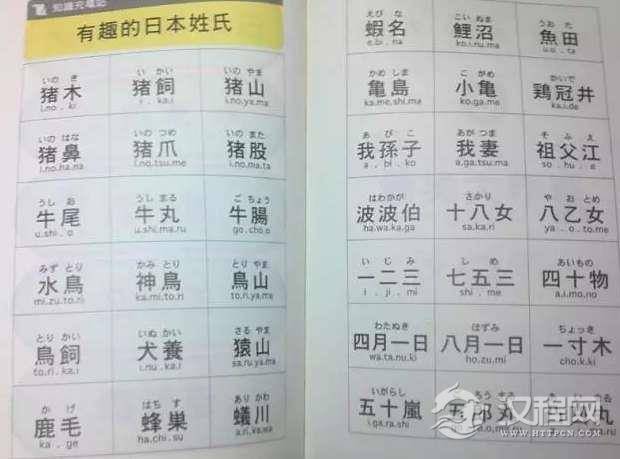 知識充電站
有趣的日本姓氏
いの き いの かい いの やま
猪木 猪飼 猪山
i.no . ki i . kai i.no.ya.ma
いの はな いの つめ いの また
猪鼻 猪爪 猪股
i.no.ha.na i.no.tsu.me i.no.ma.ta
うし お うし まる ご ちょう
牛尾 牛丸 牛腸
u.shi . o u.shi.ma.ru go.cho.o
みず とり かみ とり とり やま
水鳥 神鳥 鳥山
mi.zu.to.ri ka.mi.to.ri to.ri.ya.ma
とり かい いぬ かい さる やま
鳥飼 犬養 猿山
to.ri.ka.i i.nu.ka.i sa.ru.ya.ma
か げ はち す あり かわ
鹿毛 蜂巣 蟻川
ka . ge ha.chi.su a.ri.ka.wa
えび な こい ぬま うお た
蝦名 鯉沼 魚田
e.bi . na ko.i.nu.ma u.o . ta
かめ しま こ がめ かいで
亀島 小亀 鶏冠井
ka.me.shi.ma ko.ga.me ka.i.de
あ び こ あが つま そ ふ え
我孫子 我妻 祖父江
a . bi . ko a.ga.tsu.ma so . hu . e
はわかが さかり や おとめ
波波伯 十八女 八乙女
ha.wa.ka.ga sa.ka.ri ya . o.to.me
い じ み し め あいもの
一二三 七五三 四十物
i . ji . mi shi . me a.i.mo.no
わたぬき ほずみ ちょっき
四月一日 八月一日 一寸木
wa.ta.nu.ki ho.zu.mi cho.k.ki
いがらし
五十嵐 五郎丸
i.ga.ra.shi
汉程网
WWW.HTTPCN.COM